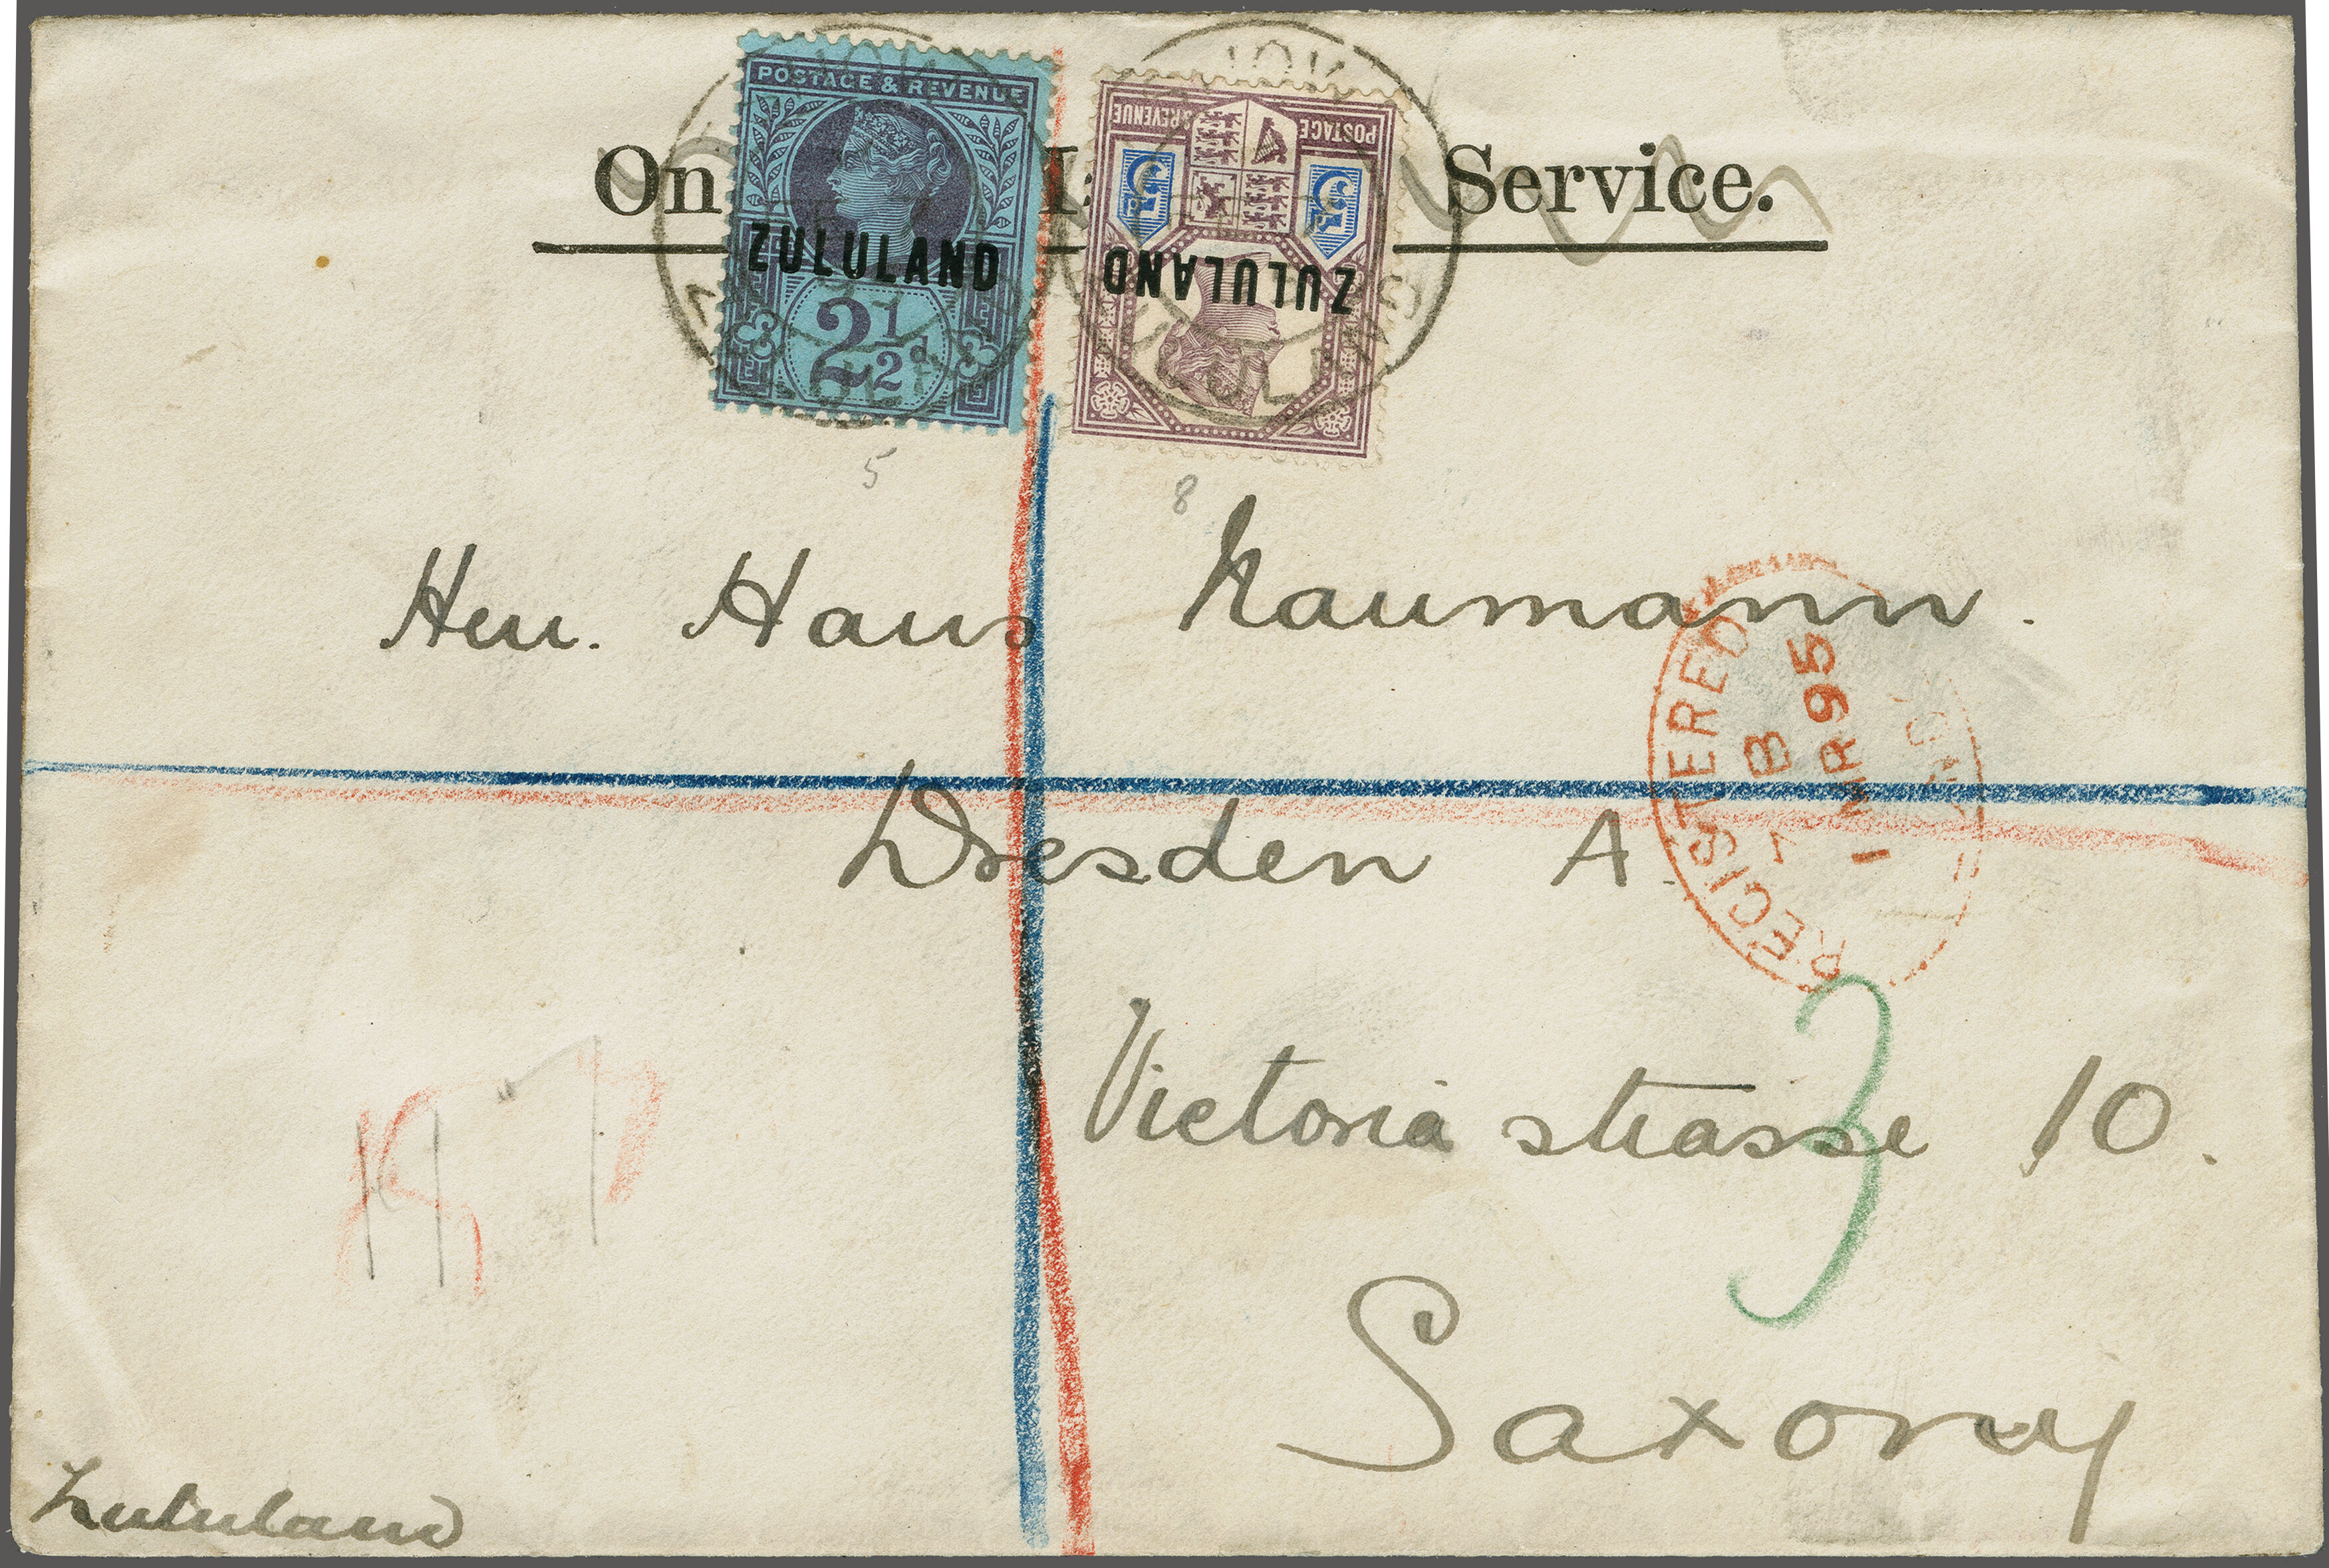 POSTAGE & REVENUE
POSTAGE & REVENUE
On Service.
ZULULAND
5d 5d
ZULULAND
2½d
5
8
Herr. Hans Naumann.
REGISTERED
B
1 MR 95
Dresden A.
3
Victoria strasse 10.
Saxony
Zululand